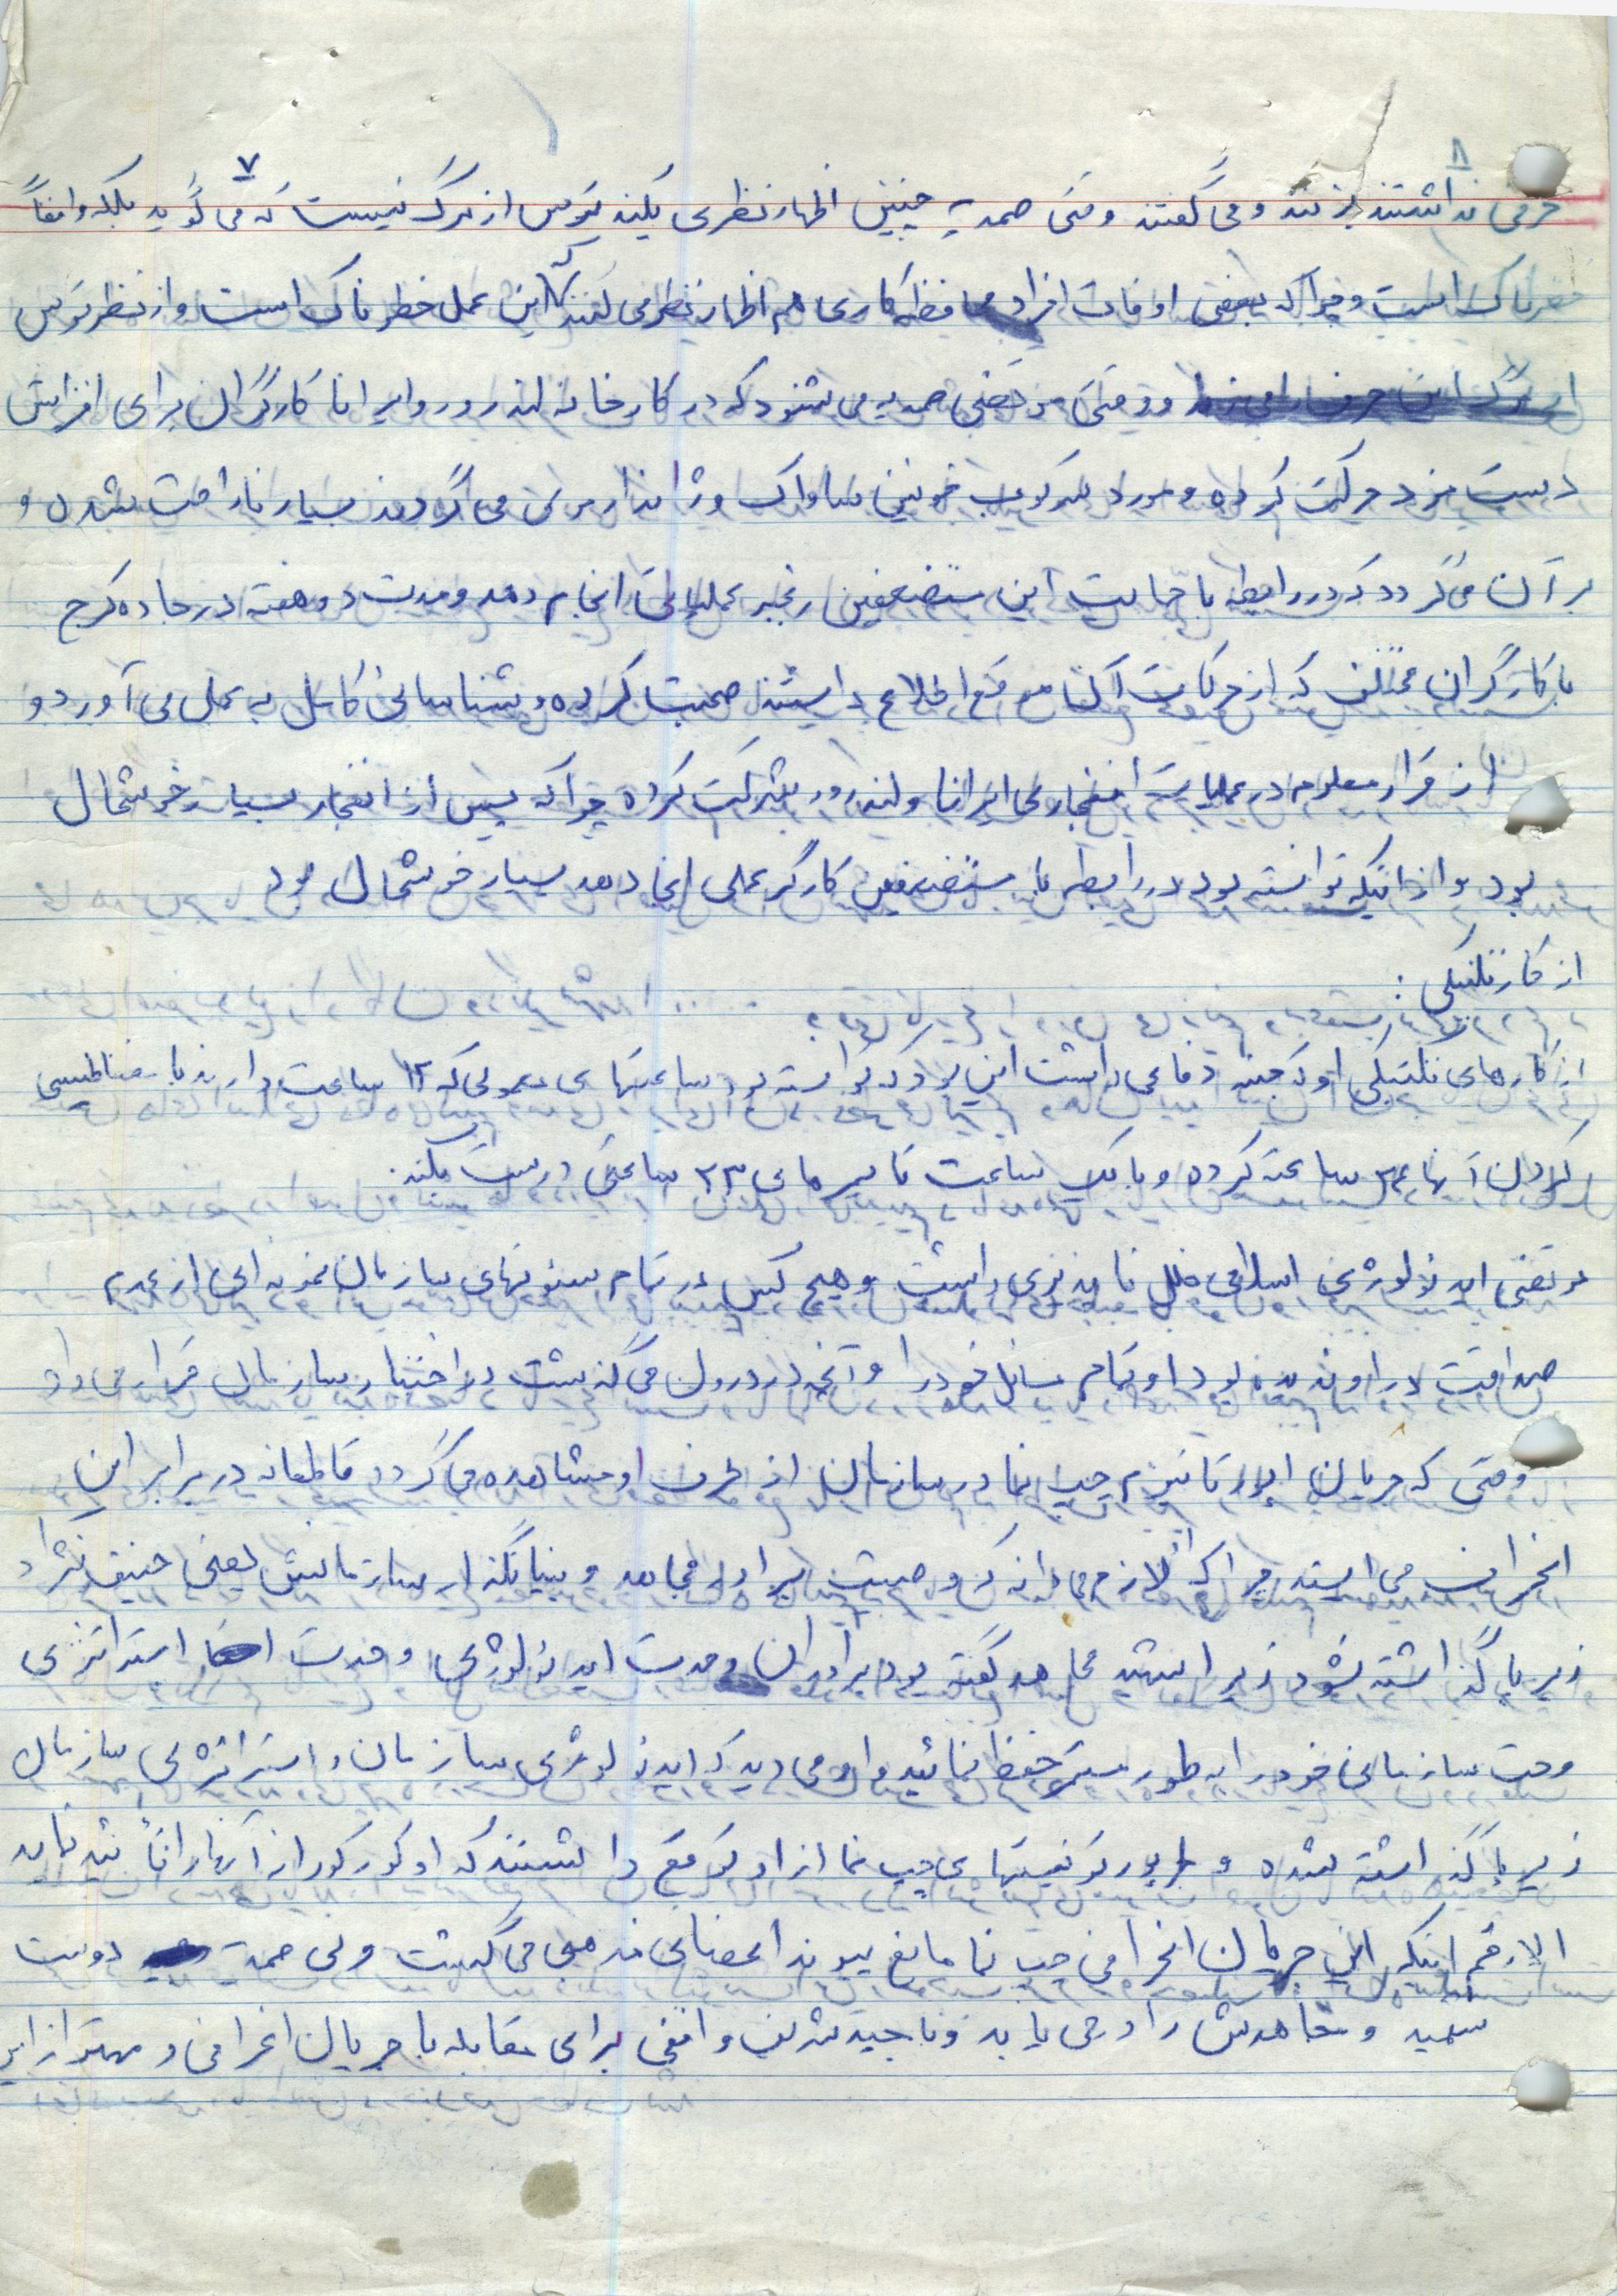 ۸
۷
حرفی نداشتند بزنند و می گفتند وقتی صمدیه چنین اظهار نظری بکند ترس از مرگ نیست که می گوید بلکه واقعاً
خطرناک است و چرا که بعضی اوقات افراد محافظه کاری هم اظهار نظر می کنند که این عمل خطرناک است و از نظر ترس
از مرگ این حرف را می زنند و وقتی مرتضی صمدیه می شنود که در کارخانه لندرور و ایرانا کارگران برای افزایش
دست مزد حرکت کرده و مورد سرکوب خونین ساواک و ژاندارمری می گردند بسیار ناراحت شده و
بر آن می گردد که در رابطه با حمایت این مستضعفین رنجبر عملیاتی انجام دهد و مدت دو هفته در جاده کرج
با کارگران مختلف که از حرکات آن موقع اطلاع داشتند صحبت کرده و شناسائی کامل به عمل می آورد و
از قرار معلوم در عملیات انفجاری ایرانا و لندرور شرکت کرده چرا که پس از انفجار بسیار خوشحال
بود و از اینکه توانسته بود در رابطه با مستضعفین کارگر عملی انجام دهد بسیار خوشحال بود
از کار تکنیکی :
از کارهای تکنیکی او که جنبه دفاعی داشت این بود که توانسته بود ساعتهای معمولی که ۱۲ ساعت دارند با مغناطیسی
کردن آنها ۲۴ ساعته کرده و با یک ساعت تایمرهای ۲۳ ساعتی درست بکند.
مرتضی ایدئولوژی اسلامی خلل ناپذیری داشت و هیچ کس در تمام ستونهای سازمان نمونه ای از عدم
صداقت در او ندیده بود او تمام مسائل خود را و آنچه در درون می گذشت در اختیار سازمان قرار می داد
وقتی که جریان اپورتانیزم چپ نما در سازمان از طرف او مشاهده می گردد قاطعانه در برابر این
انحراف می ایستد چرا که لازم می داند که وصیت برادر مجاهد و بنیانگذار سازمانش یعنی حنیف نژاد
زیر پا گذاشته نشود زیرا شهید مجاهد گفته بود برادران وحدت ایدئولوژی وحدت استراتژی
وحدت سازمانی خود را به طور مستمر حفظ نمائید و او می دید که ایدئولوژی سازمان و استراتژی سازمان
زیر پا گذاشته شده و اپورتونیستهای چپ نما از او توقع داشتند که او کورکورانه آنها را تأئید نماید
الارقم اینکه این جریان انحرافی چپ نما مانع پیوند اعضای مذهبی می گشت ولی صمدیه دوست
سعید و مجاهدش را در می یابد و با جید شریف واقفی برای مقابله با جریان انحرافی و مهمتر از این